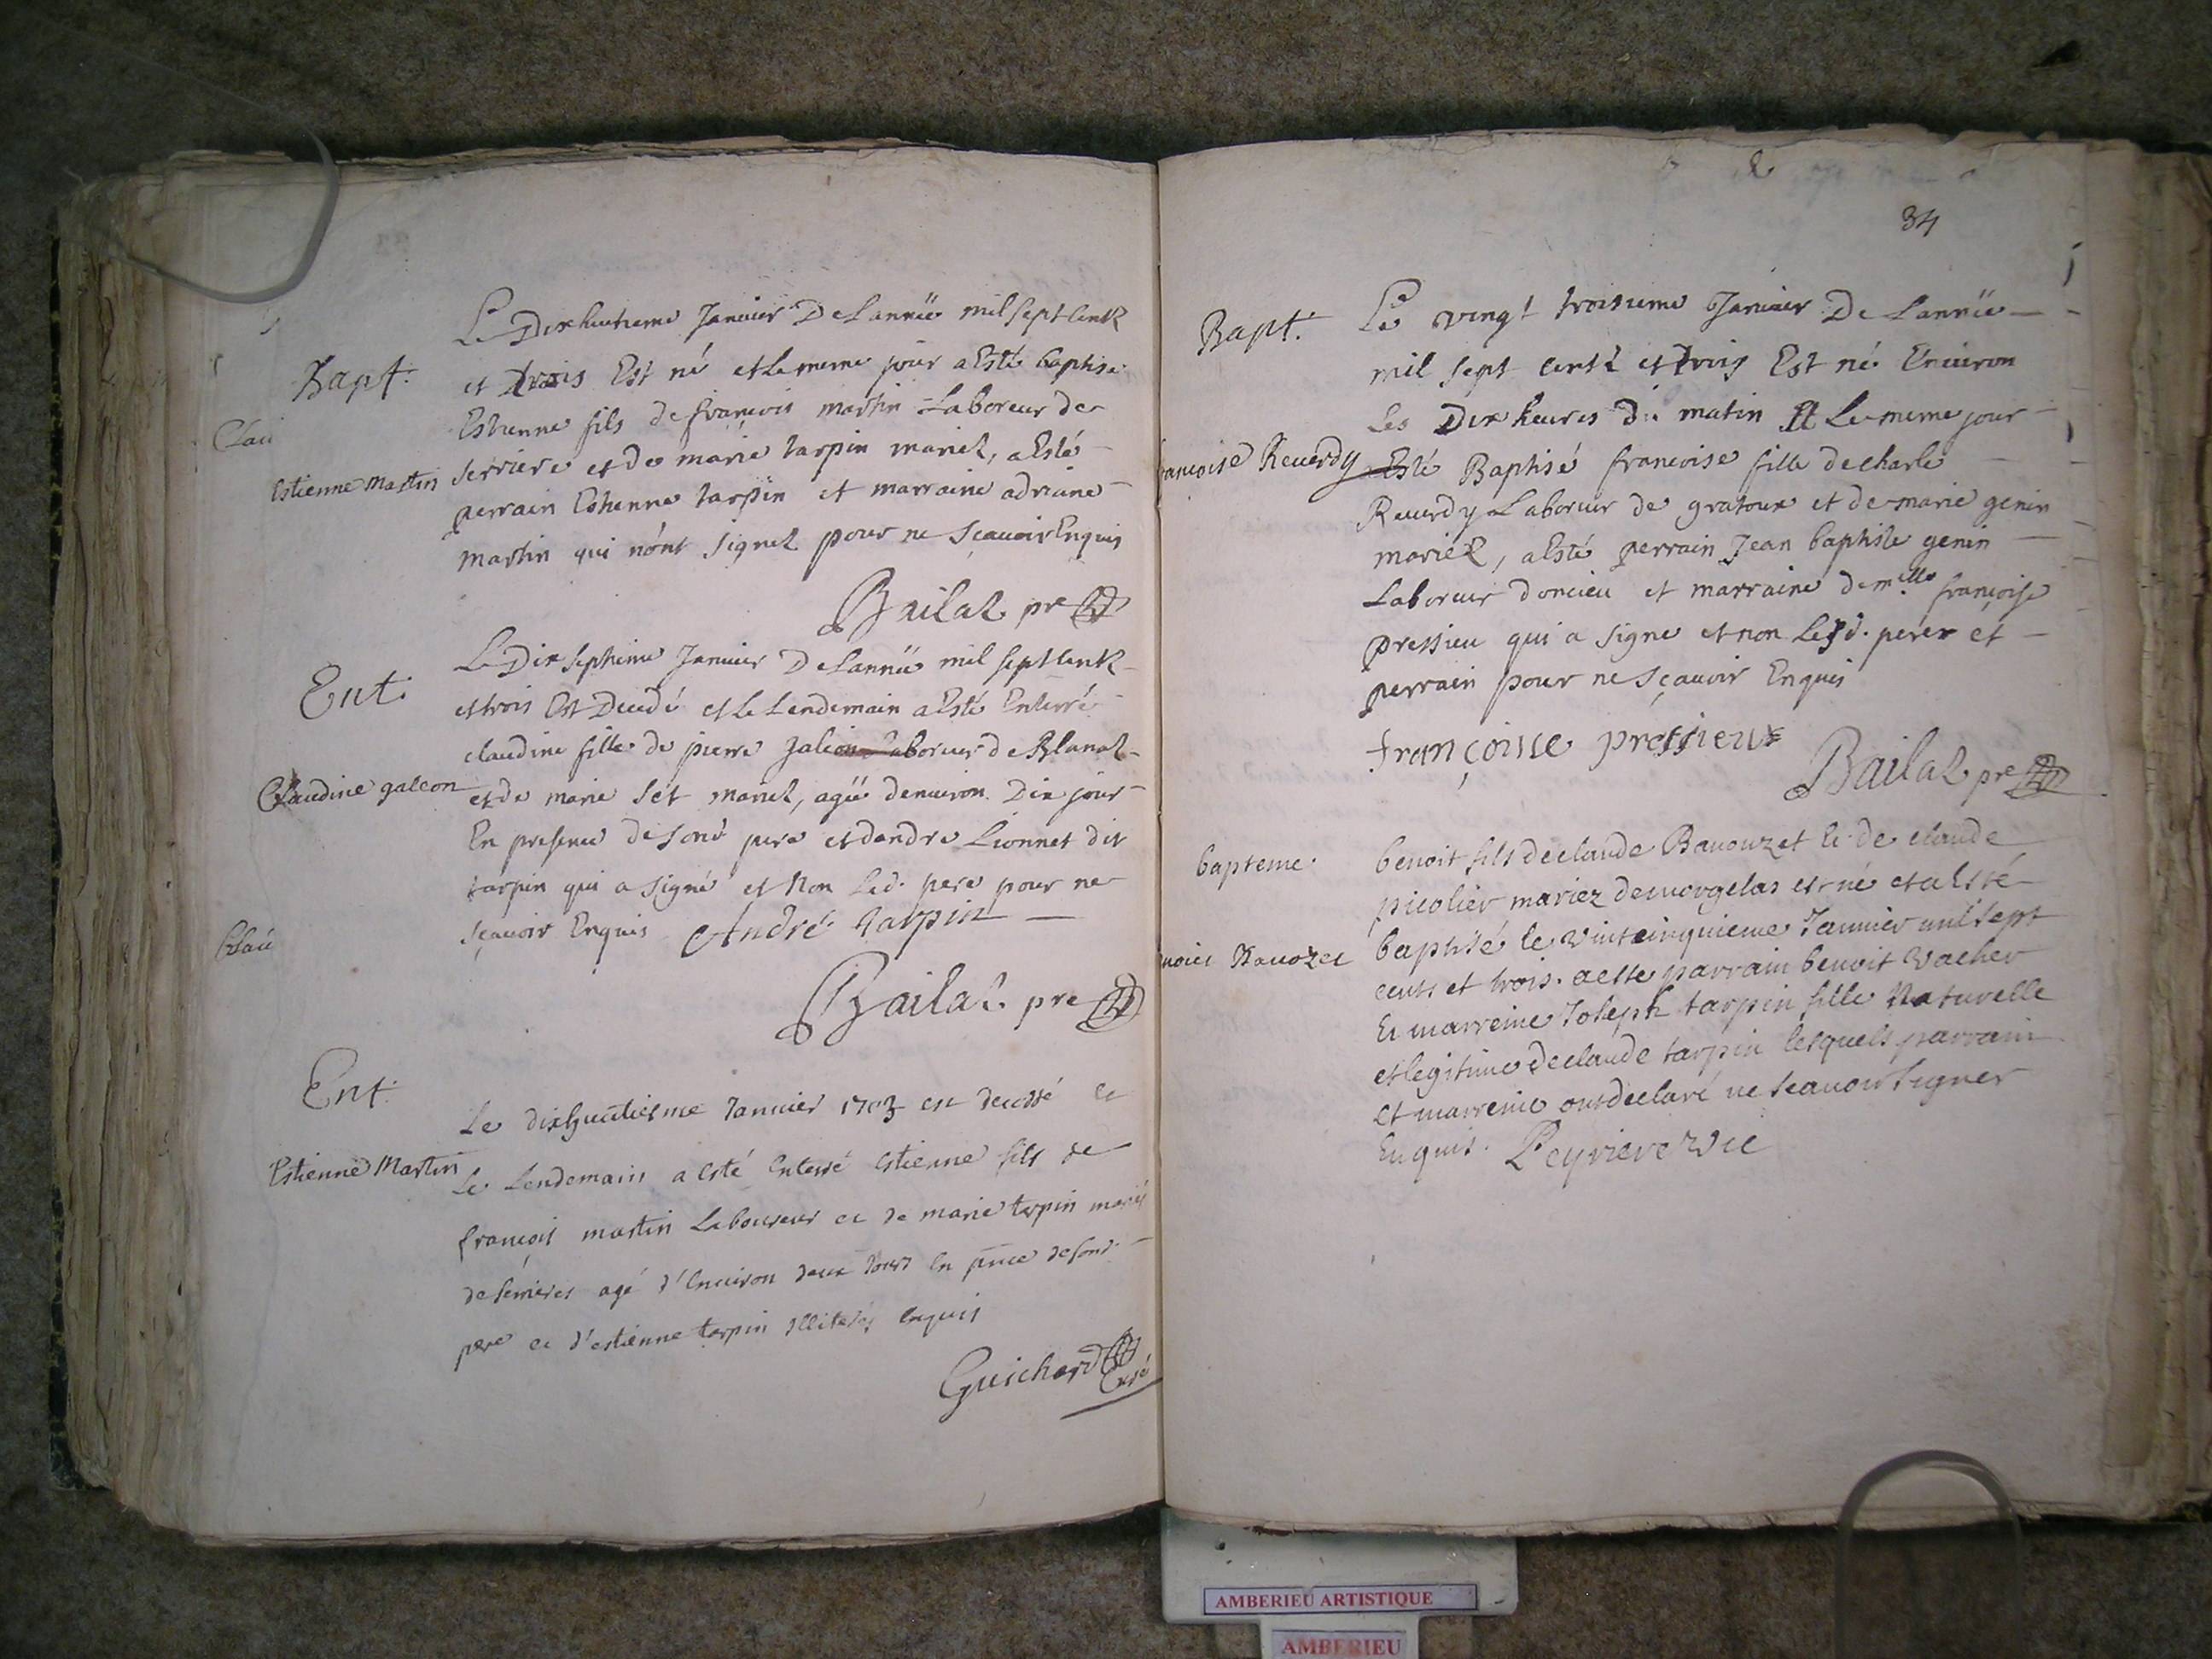 Bapt.
Estienne Martin
Le Dixhuitieme Januier De L'année mil sept centz
et trois Est né et le meme jour a Esté baptisé
Estienne fils de françois martin Laboreur de
serriere et de marie tarpin mariez, a Esté
perrain Estienne tarpin et marraine adriane
martin qui n'ont signez pour ne Sçauoir Enquis
Bailat pre
Ent.
Claudine galeon
Le Dix septieme Januier De Lannée mil sept centz
et trois Est Decedé et le Lendemain a Esté Enterré
claudine fille de pierre Laboreur de Blanaz
et de marie mariez, agée denuiron Dix jour
En presence de sond pere et dandre Lionnet dit
tarpin qui a signé et Non led. pere pour ne
sçauoir Enquis André tarpin
Bailat pre
Ent.
Estienne Martin
Le dixhuictiesme Januier 1703 est decedé et
Le Lendemain a esté enterré estienne fils de
françois martin Laboureur et de marie tarpin mariés
de serrieres agé d'enuiron deux jours en pnce de sond
pere et d'estienne tarpin illiterés enquis
Guichard Curé
Clau
Clau
34
Bapt.
ancoise Reuerdy
Le vingt troisieme Januier De Lannée
mil sept centz et trois Est né Enuiron
Les Dix heures du matin et Le meme jour
Esté Baptisé francoise fille de charle
Reuerdy Laboreur de gratoux et de marie genin
mariez, a Esté perrain Jean baptiste genin
Laboreur doncieu et marraine demlle françoise
pressieu qui a signé et non Lesd. perer et
perrain pour ne Sçauoir Enquis
françoise pressieux
Bailat pre
bapteme
noict Bauozet
benoit fils de claude Bauouzet et de claude
picolier mariez de morgelas est né et a esté
baptisé le vint cinquieme Januier mil sept
cents et trois. a este parrain benoit vacher
Et marreine Joseph tarpin fille Naturelle
et legitime de claude tarpin lesquels parrain
et marreine ont declaré ne scauoir signer
Enquis. Peyriere vic
AMBERIEU ARTISTIQUE
AMBERIEU